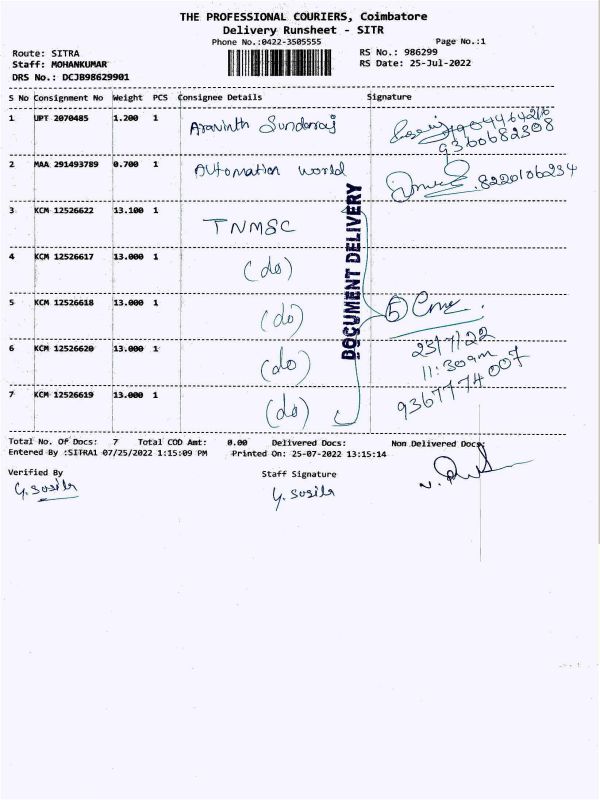 THE PROFESSIONAL COURIERS, Coimbatore
Delivery Runsheet - SITR
Phone No.:0422-3505555
Page No.:1
Route: SITRA
RS No.: 986299
Staff: MOHANKUMAR
RS Date: 25-Jul-2022
DRS No.: DCJB98629901
S No Consignment No Weight PCS Consignee Details Signature
1 UPT 2070485 1.200 1 Aravinth Sundaraj
9360682308
2 MAA 291493789 0.700 1 Automation world 8220106234
3 KCM 12526622 13.100 1 TNMSC
4 KCM 12526617 13.000 1 (do)
5 KCM 12526618 13.000 1 (do) 5
6 KCM 12526620 13.000 1 (do) 23/7/22
11:30am
7 KCM 12526619 13.000 1 (do) 9367774007
DOCUMENT DELIVERY
Total No. Of Docs: 7 Total COD Amt: 0.00 Delivered Docs: Non Delivered Docs:
Entered By :SITRA1 07/25/2022 1:15:09 PM Printed On: 25-07-2022 13:15:14
Verified By Staff Signature
G. Susila G. Susila